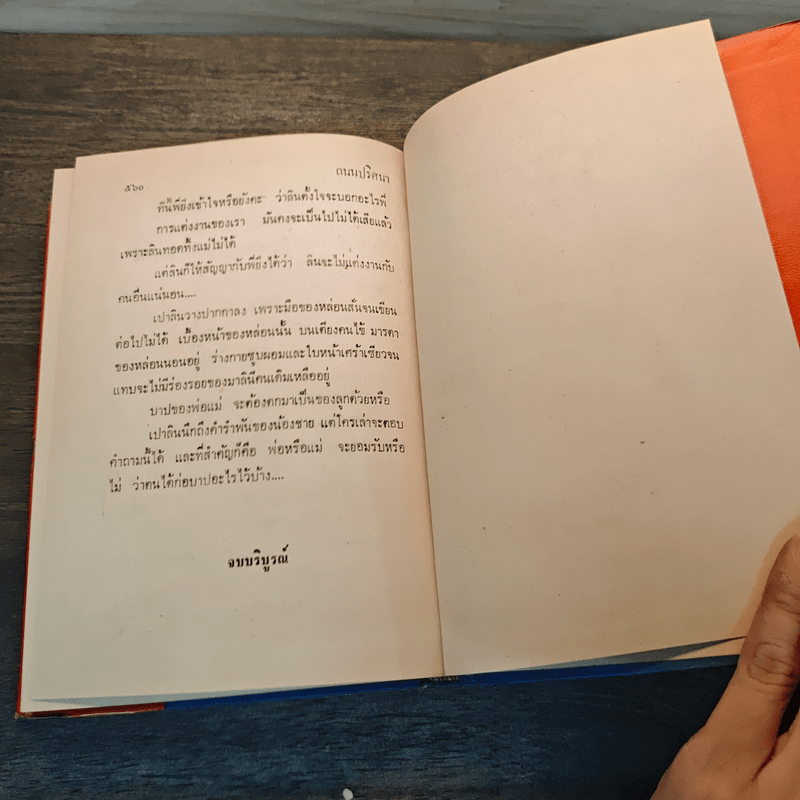 ๕๖๐
ถนนปริศนา
ทีนี้พี่ยิ่งเข้าใจหรือยังคะ ว่าลินตั้งใจจะบอกอะไรพี่
การแต่งงานของเรา มันคงจะเป็นไปไม่ได้เสียแล้ว
เพราะลินทอดทิ้งแม่ไม่ได้
แต่ลินก็ให้สัญญากับพี่ยิ่งได้ว่า ลินจะไม่แต่งงานกับ
คนอื่นแน่นอน....
เปาลินวางปากกาลง เพราะมือของหล่อนสั่นจนเขียน
ต่อไปไม่ได้ เบื้องหน้าของหล่อนนั้น บนเตียงคนไข้ มารดา
ของหล่อนนอนอยู่ ร่างกายซูบผอมและใบหน้าเศร้าเซียวจน
แทบจะไม่มีร่องรอยของมาลินีคนเดิมเหลืออยู่
บาปของพ่อแม่ จะต้องตกมาเป็นของลูกด้วยหรือ
เปาลินนึกถึงคำรำพันของน้องชาย แต่ใครเล่าจะตอบ
คำถามนี้ได้ และที่สำคัญก็คือ พ่อหรือแม่ จะยอมรับหรือ
ไม่ ว่าตนได้ก่อบาปอะไรไว้บ้าง....
จบบริบูรณ์